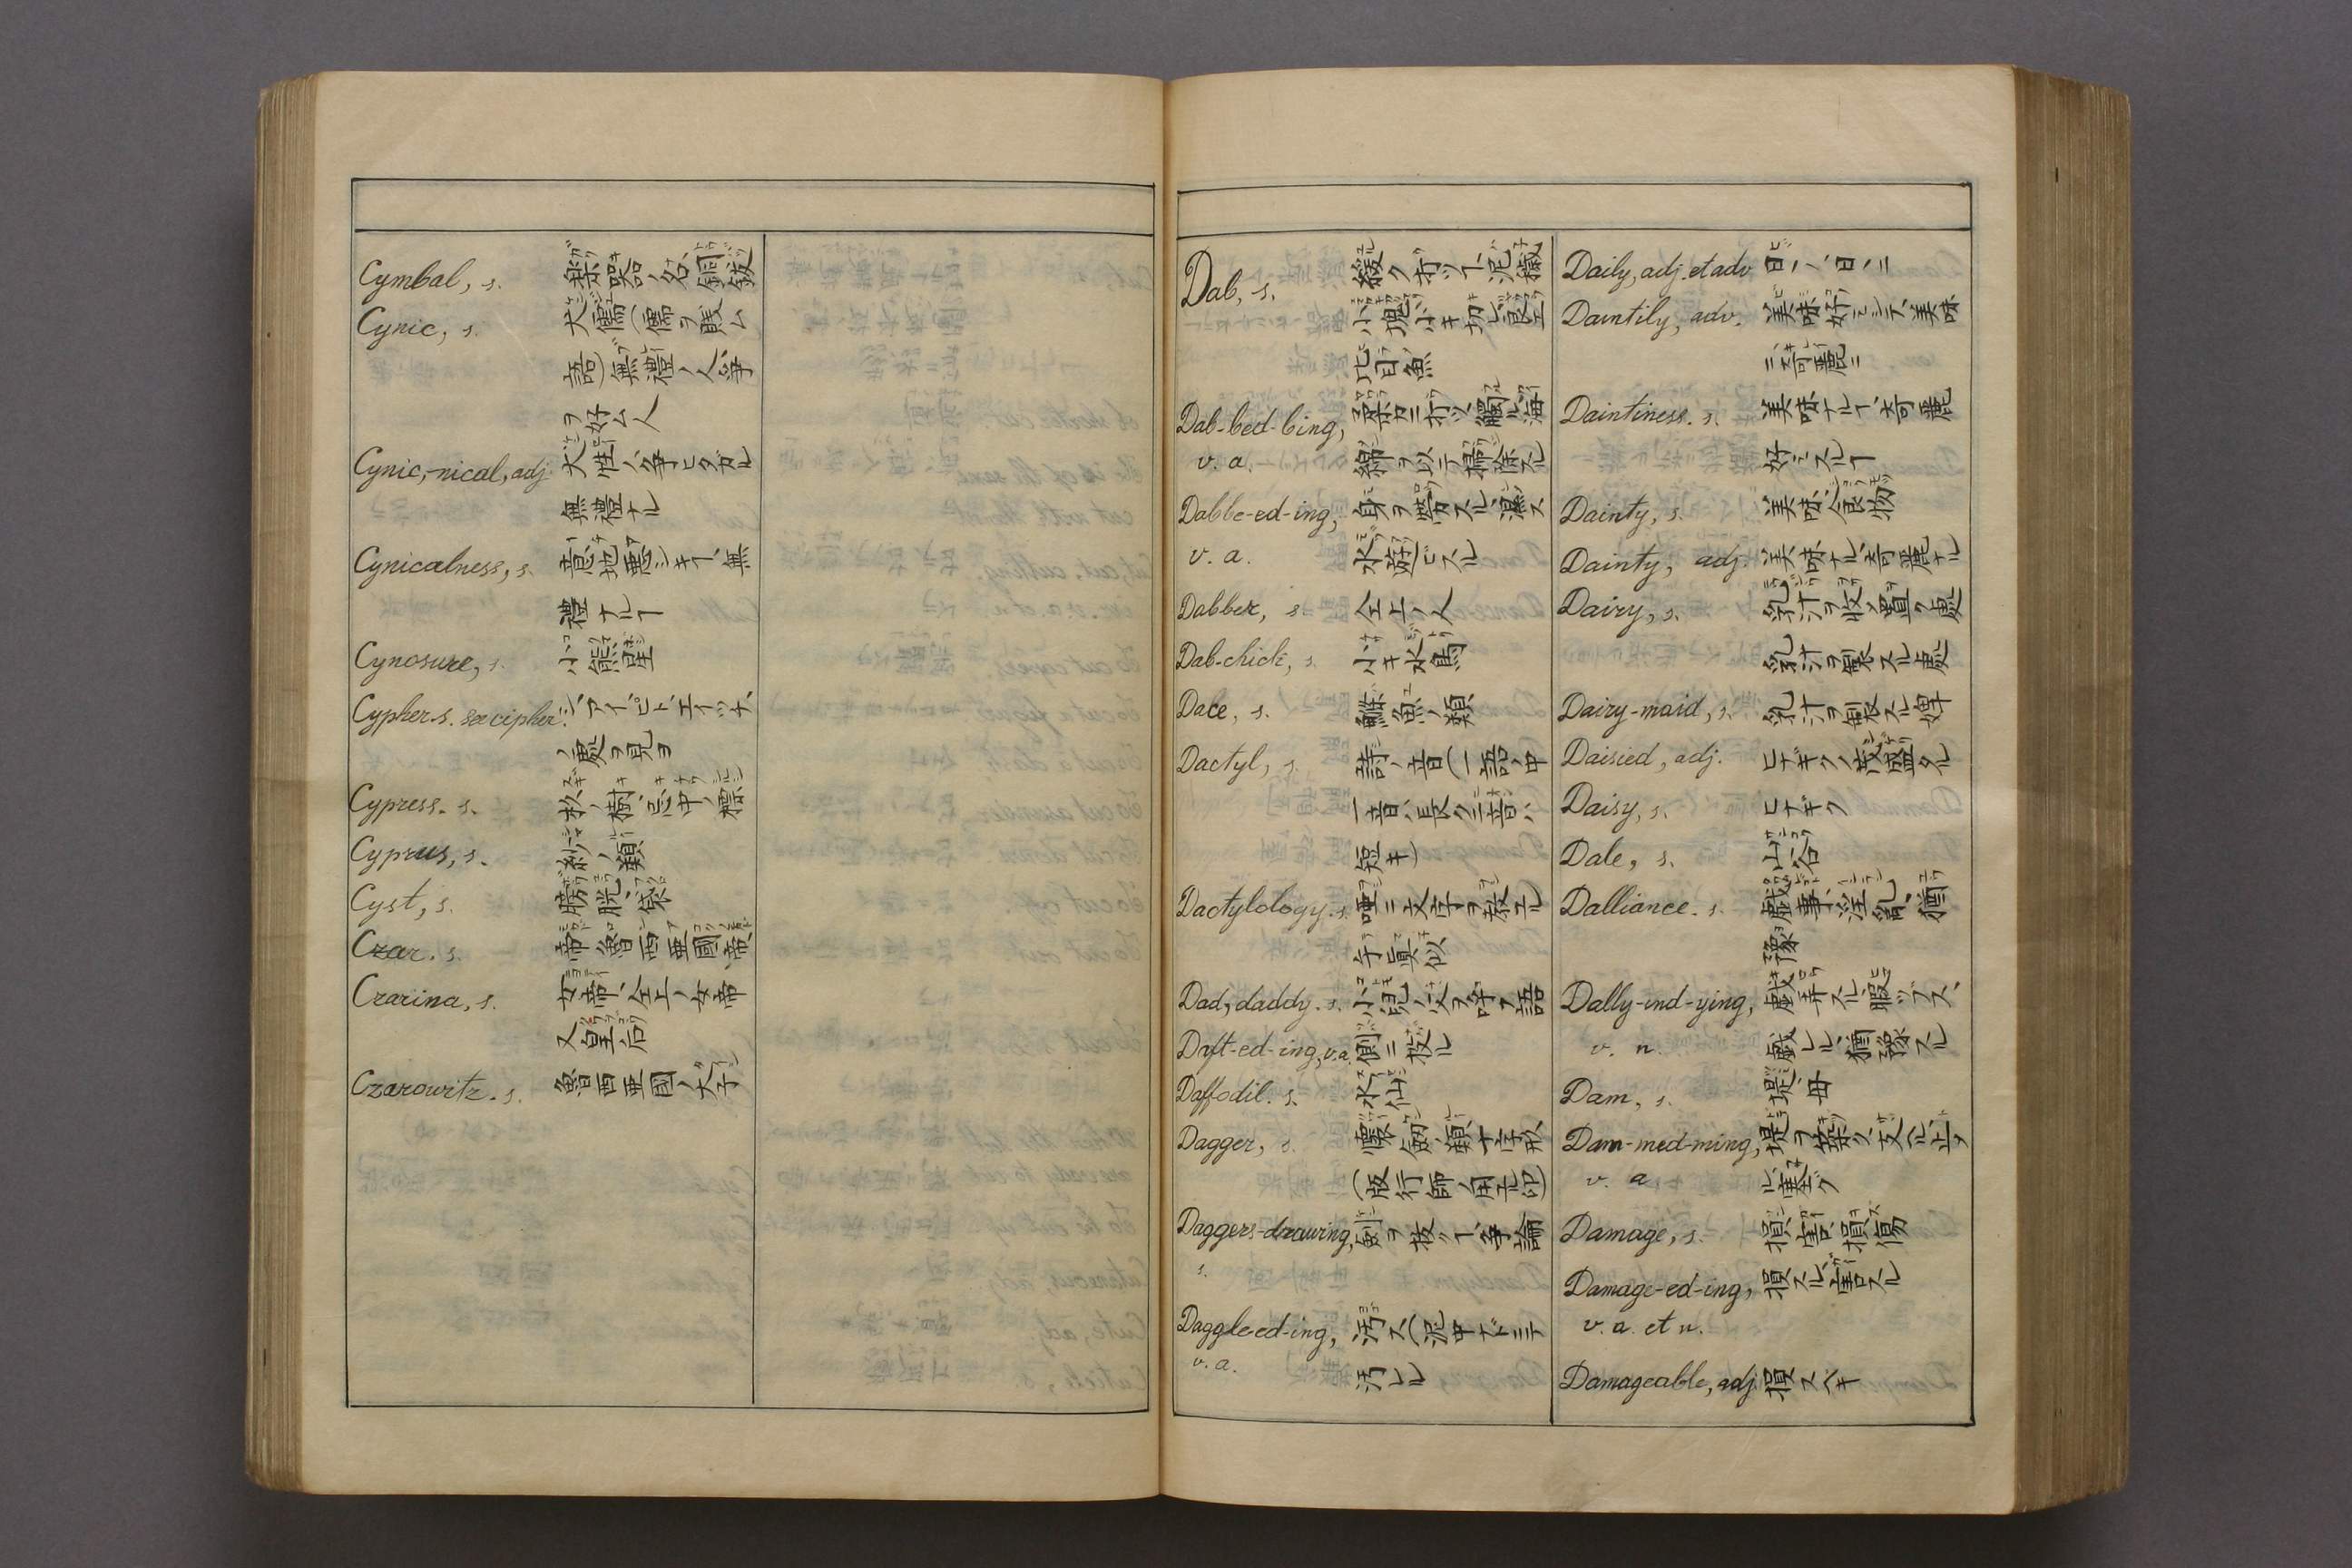 Cymbal, s. 楽器ノ名、銅鈸
Cynic, s. 犬儒(儒ヲ賎ム
語)無禮ノ人、爭
ヲ好ム人
Cynic,-nical, adj. 犬性ノ、爭ヒタガル
無禮ナル
Cynicalness, s. 意地悪シキヿ、無
禮ナルヿ
Cynosure, s. 小熊星
Cypher. s. see cipher. シ、アイ、ピ、ト、エイツチ、
ノ處ヲ見ヨ
Cypress. s. 杉ノ樹、忌中ノ標
Cyprus, s. 紗ノ類
Cyst, s. 膀胱、袋
Czar. s. 帝魯西亜國ノ帝、
Czarina, s. 女帝、仝上ノ女帝
又皇后
Czarowitz. s. 魯西亜国ノ太子
Dab, s. 緩ク打ツヿ、泥
小塊小キ切レ
比目魚
Dab-bed-bing, 柔カニ打ツ、觸ル、海
v. a. 綿ヲ以テ掃除スル
Dabbe-ed-ing, 身ヲ労スル、濕ス
v. a. 水遊ビスル
Dabber, s. 仝上ノ人
Dab-chick, s. 小キ水鳥
Dace, s. 魚ノ類
Dactyl, s. 詩ノ音(一語ノ中
一音ハ長ク二音ハ
短キ)
Dactylology. s. 唖ニ文字ヲ教エル
手真似
Dad, daddy. s. 小児ノ父ヲ呼フ語
Daft-ed-ing, v.a. 側ニ投ル
Daffodil. s. 水仙
Dagger, s. 懐劔ノ類十字形
(版行師ノ用ル印)
Daggers-drawing, 劔ヲ抜ヿ、争論
s.
Daggle-ed-ing, 汚ス(泥中ナドニテ
v. a. 汚レル
Daily, adj. et adv. 日々ノ、日々ニ
Daintily, adv. 美味好ミシテ、美味
ニ、奇麗ニ
Daintiness. s. 美味ナルヿ、奇麗
好ミスルヿ
Dainty, s. 美味、食物
Dainty, adj. 美味ナル、奇麗ナル
Dairy, s. 乳汁ヲ収メ置ク處
乳汁ヲ製スル處
Dairy-maid, s. 乳汁ヲ製スル婢
Daisied, adj. ヒナギクノ茂盛タル
Daisy, s. ヒナギク
Dale, s. 山谷
Dalliance. s. 戯事、淫乱、猶
豫
Dally-ind-ying, 戯弄スル、暇ツブス、
v. n. 戯レル、猶豫スル
Dam, s. 堤、母
Dam-med-ming, 堤ヲ築ク、支ヘル、止ム
v. a. ル、塞グ
Damage, s. 損害、損傷
Damage-ed-ing, 損スル、害スル
v. a. et n.
Damageable, adj. 損スヘキ